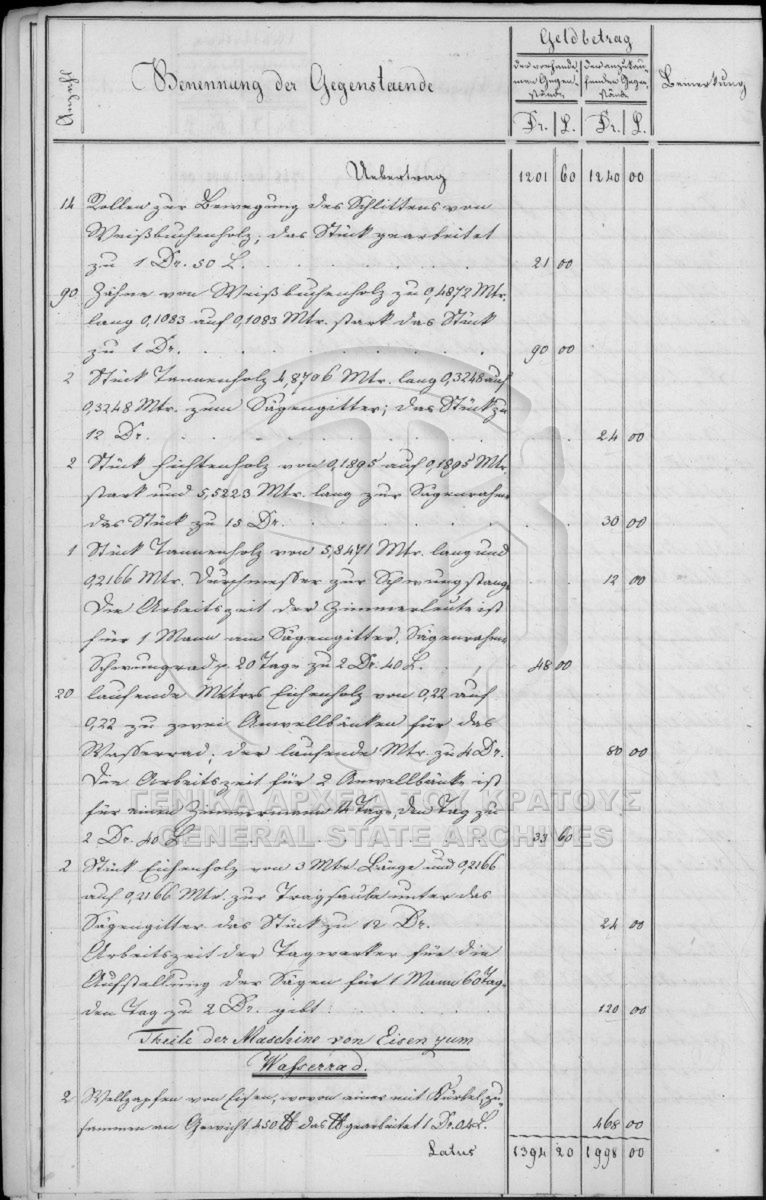 Geldbetrag
Anzahl
Benennung der Gegenstaende
der vorhande-
nen Gegen-
stände.
der anzukau-
fenden Gegen-
stände.
Bemerkung
Dr. L. Dr. L.
Uebertrag 1201 60 1240 00
14 Rollen zur Bewegung des Schlittens von
Weißbuchenholz; das Stück gearbeitet
zu 1 Dr. 50 L. 21 00
90 Zähne von Weißbuchenholz zu 0,4872 Mtr.
lang 0,1083 auf 0,1083 Mtr. stark das Stück
zu 1 Dr. 90 00
2 Stück Tannenholz 4,8706 Mtr. lang 0,3248 auf
0,3248 Mtr. zum Sägengitter; das Stück zu
12 Dr. 24 00
2 Stück Fichtenholz von 0,1895 auf 0,1895 Mtr.
stark und 5,5223 Mtr. lang zur Sägenrahme
das Stück zu 15 Dr. 30 00
1 Stück Tannenholz von 5,8471 Mtr. lang und
0,2166 Mtr. Durchmesser zur Schwungstange 12 00
Die Arbeitszeit der Zimmerleute ist
für 1 Mann am Sägengitter, Sägenrahme
Schwungrad p. 20 Tage zu 2 Dr. 40 L. 48 00
20 laufende Metres Eichenholz von 0,22 auf
0,22 zu zwei Anwellbänken für das
Wasserrad; der laufende Mtr. zu 4 Dr. 80 00
Die Arbeitszeit für 2 Anwellbänke ist
für einen Zimmermann 14 Tage, den Tag zu
2 Dr. 40 L. 33 60
2 Stück Eichenholz von 3 Mtr. Länge und 0,2166
auf 0,2166 Mtr. zur Tragsäule unter das
Sägengitter das Stück zu 12 Dr. 24 00
Arbeitszeit der Tagwerker für die
Aufstellung der Sägen für 1 Mann 60 Tag.
den Tag zu 2 Dr. gibt: 120 00
Theile der Maschine von Eisen zum
Wasserrad.
2 Wellzapfen von Eisen, wovon einer mit Kurbel, zu-
sammen an Gewicht 450 ℔ das ℔ gearbeitet 1 Dr. 04 L. 468 00
Latus 1394 20 1998 00
ΓΕΝΙΚΑ ΑΡΧΕΙΑ ΤΟΥ ΚΡΑΤΟΥΣ
GENERAL STATE ARCHIVES